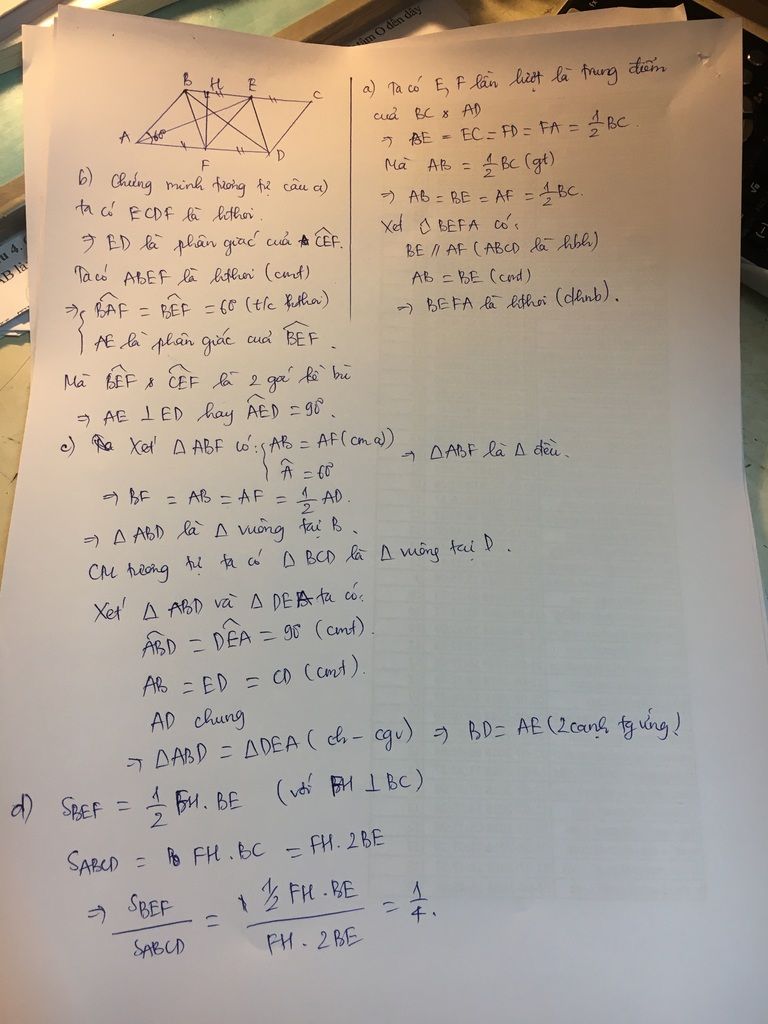 B H E C
A 60° F D
a) Ta có E, F lần lượt là trung điểm
của BC & AD
⇒ BE = EC = FD = FA = 1/2 BC.
Mà AB = 1/2 BC (gt)
⇒ AB = BE = AF = 1/2 BC.
Xét ◊ BEFA có:
BE // AF (ABCD là hbh)
AB = BE (cmt)
⇒ BEFA là hthoi (dhnb).
b) Chứng minh tương tự câu a)
ta có ECDF là hthoi.
⇒ ED là phân giác của CEF.
Ta có ABEF là hthoi (cmt)
⇒ { BAF = BEF = 60° (t/c hthoi)
AE là phân giác của BEF.
Mà BEF & CEF là 2 góc kề bù
⇒ AE ⊥ ED hay AED = 90°.
c) Xét Δ ABF có: { AB = AF (cm a)) ⇒ Δ ABF là Δ đều.
A = 60°
⇒ BF = AB = AF = 1/2 AD.
⇒ Δ ABD là Δ vuông tại B.
CM tương tự ta có Δ BCD là Δ vuông tại D.
Xét Δ ABD và Δ DEA ta có:
ABD = DEA = 90° (cmt).
AB = ED = CD (cmt).
AD chung
⇒ ΔABD = ΔDEA (ch - cgv) ⇒ BD = AE (2 cạnh tg ứng)
d) S_BEF = 1/2 FH . BE (với FH ⊥ BC)
S_ABCD = FH . BC = FH . 2BE
⇒ S_BEF / S_ABCD = (1/2 FH . BE) / (FH . 2BE) = 1/4.